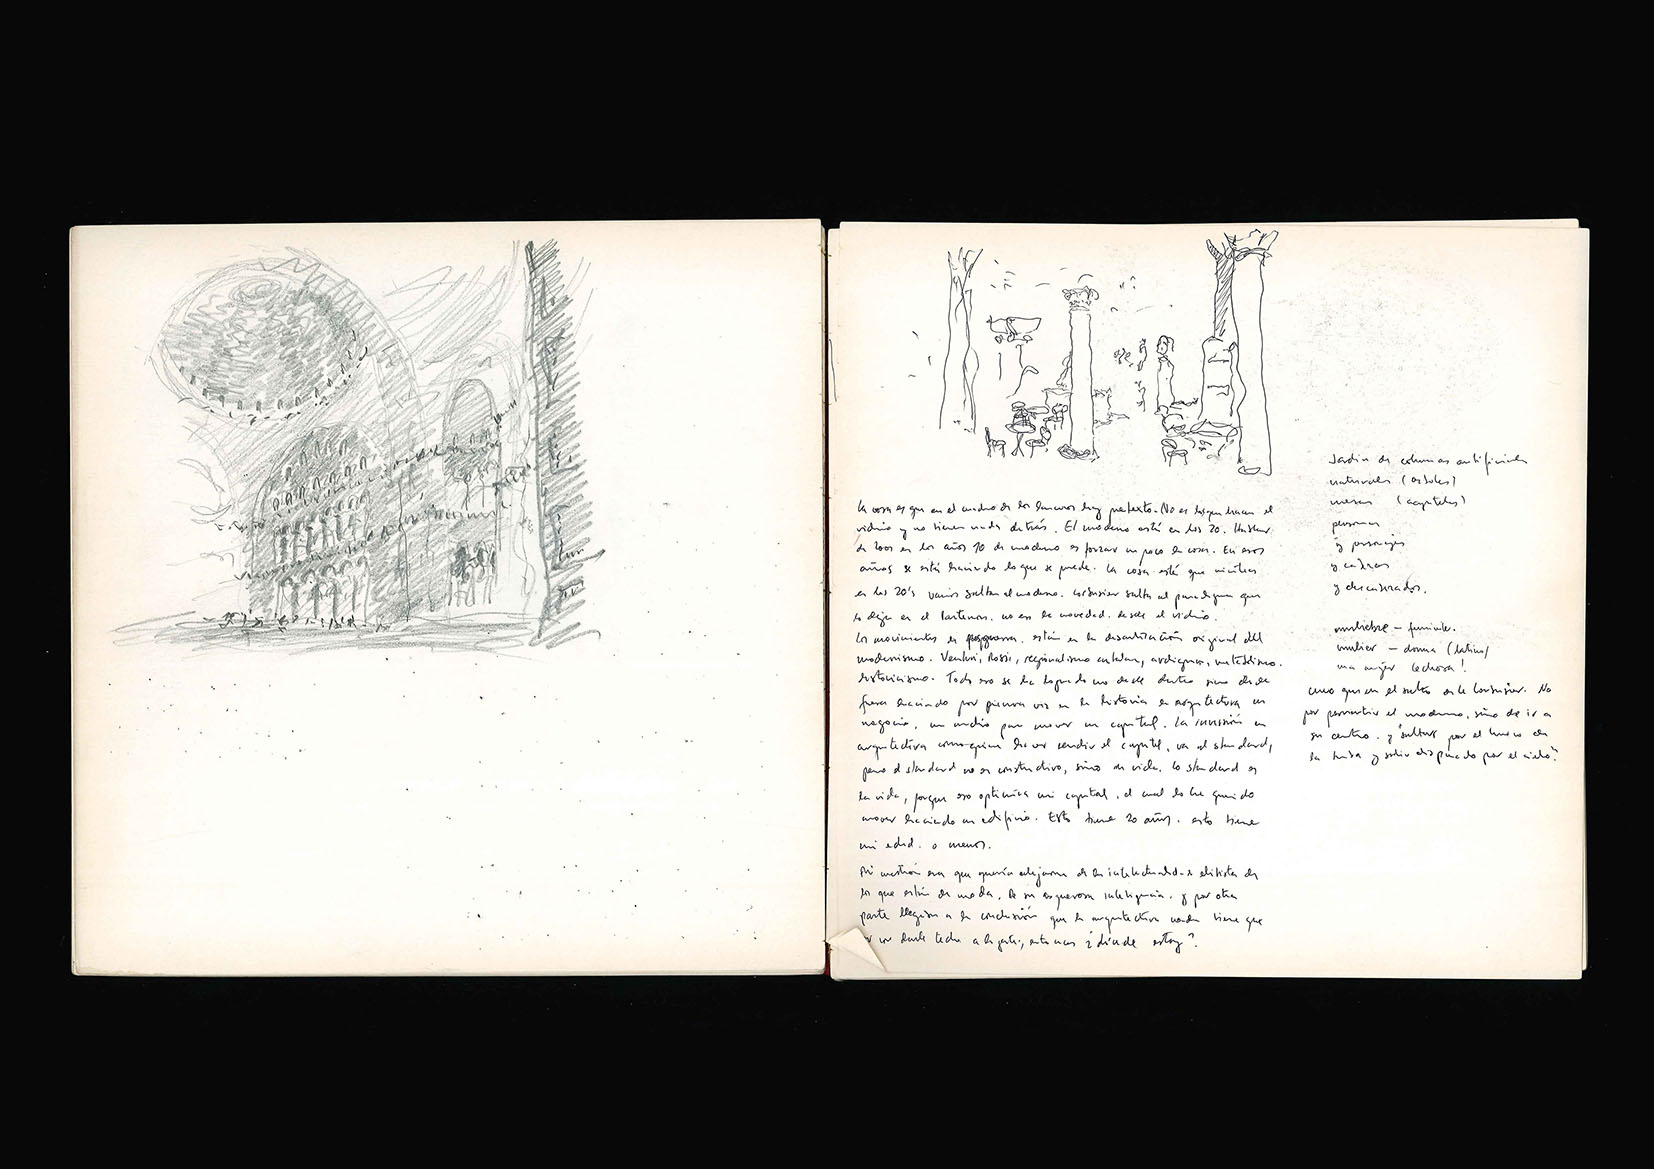 La cosa es que en el cuadro de los hay pretexto. No es los que hacen el
vidrio y no tienen nada detrás. El moderno está en los 20. Hablar
de en los años 70 de moderno es forzar un poco la cosa. En esos
años se está haciendo lo que se puede. La cosa está que
en los 20's varios saltan al moderno. Corbusier salta al paradigma que
lo deja en el Partenon. no es la novedad. desde el vidrio.
Los movimientos en están en la original del
modernismo. Venturi, Rossi, regionalismo catalan,
historicismo. Todo eso se ha logrado no desde dentro sino desde
fuera haciendo por primera vez en la historia la arquitectura un
negocio, un medio para mover un capital. La inversión en
arquitectura hacer rendir el capital, va al standard,
pero el standard no es constructivo, sino de vida. lo standard es
la vida, porque eso optimiza mi capital, el cual lo he querido
mover haciendo un edificio. Esto tiene 20 años. esto tiene
mi edad. o menos.
Mi cuestión era que quería alejarme de los elitistas de
los que están de moda. De su asquerosa inteligencia. y por otra
parte llegan a la conclusión que la arquitectura tiene que
ver con darle techo a la gente, entonces ¿dónde estoy?
Jardin de columnas artificiales
naturales (arboles)
mesas (capiteles)
personas
y personajes
y
y descansados.
muliebre – femenil.
mulier – donna (latino)
una mujer lechosa!
creo que en el salto de le Corbusier. No
por pervertir el moderno, sino de ir a
su centro. y "saltar por el hueco de
la tumba y salir disparado por el cielo"